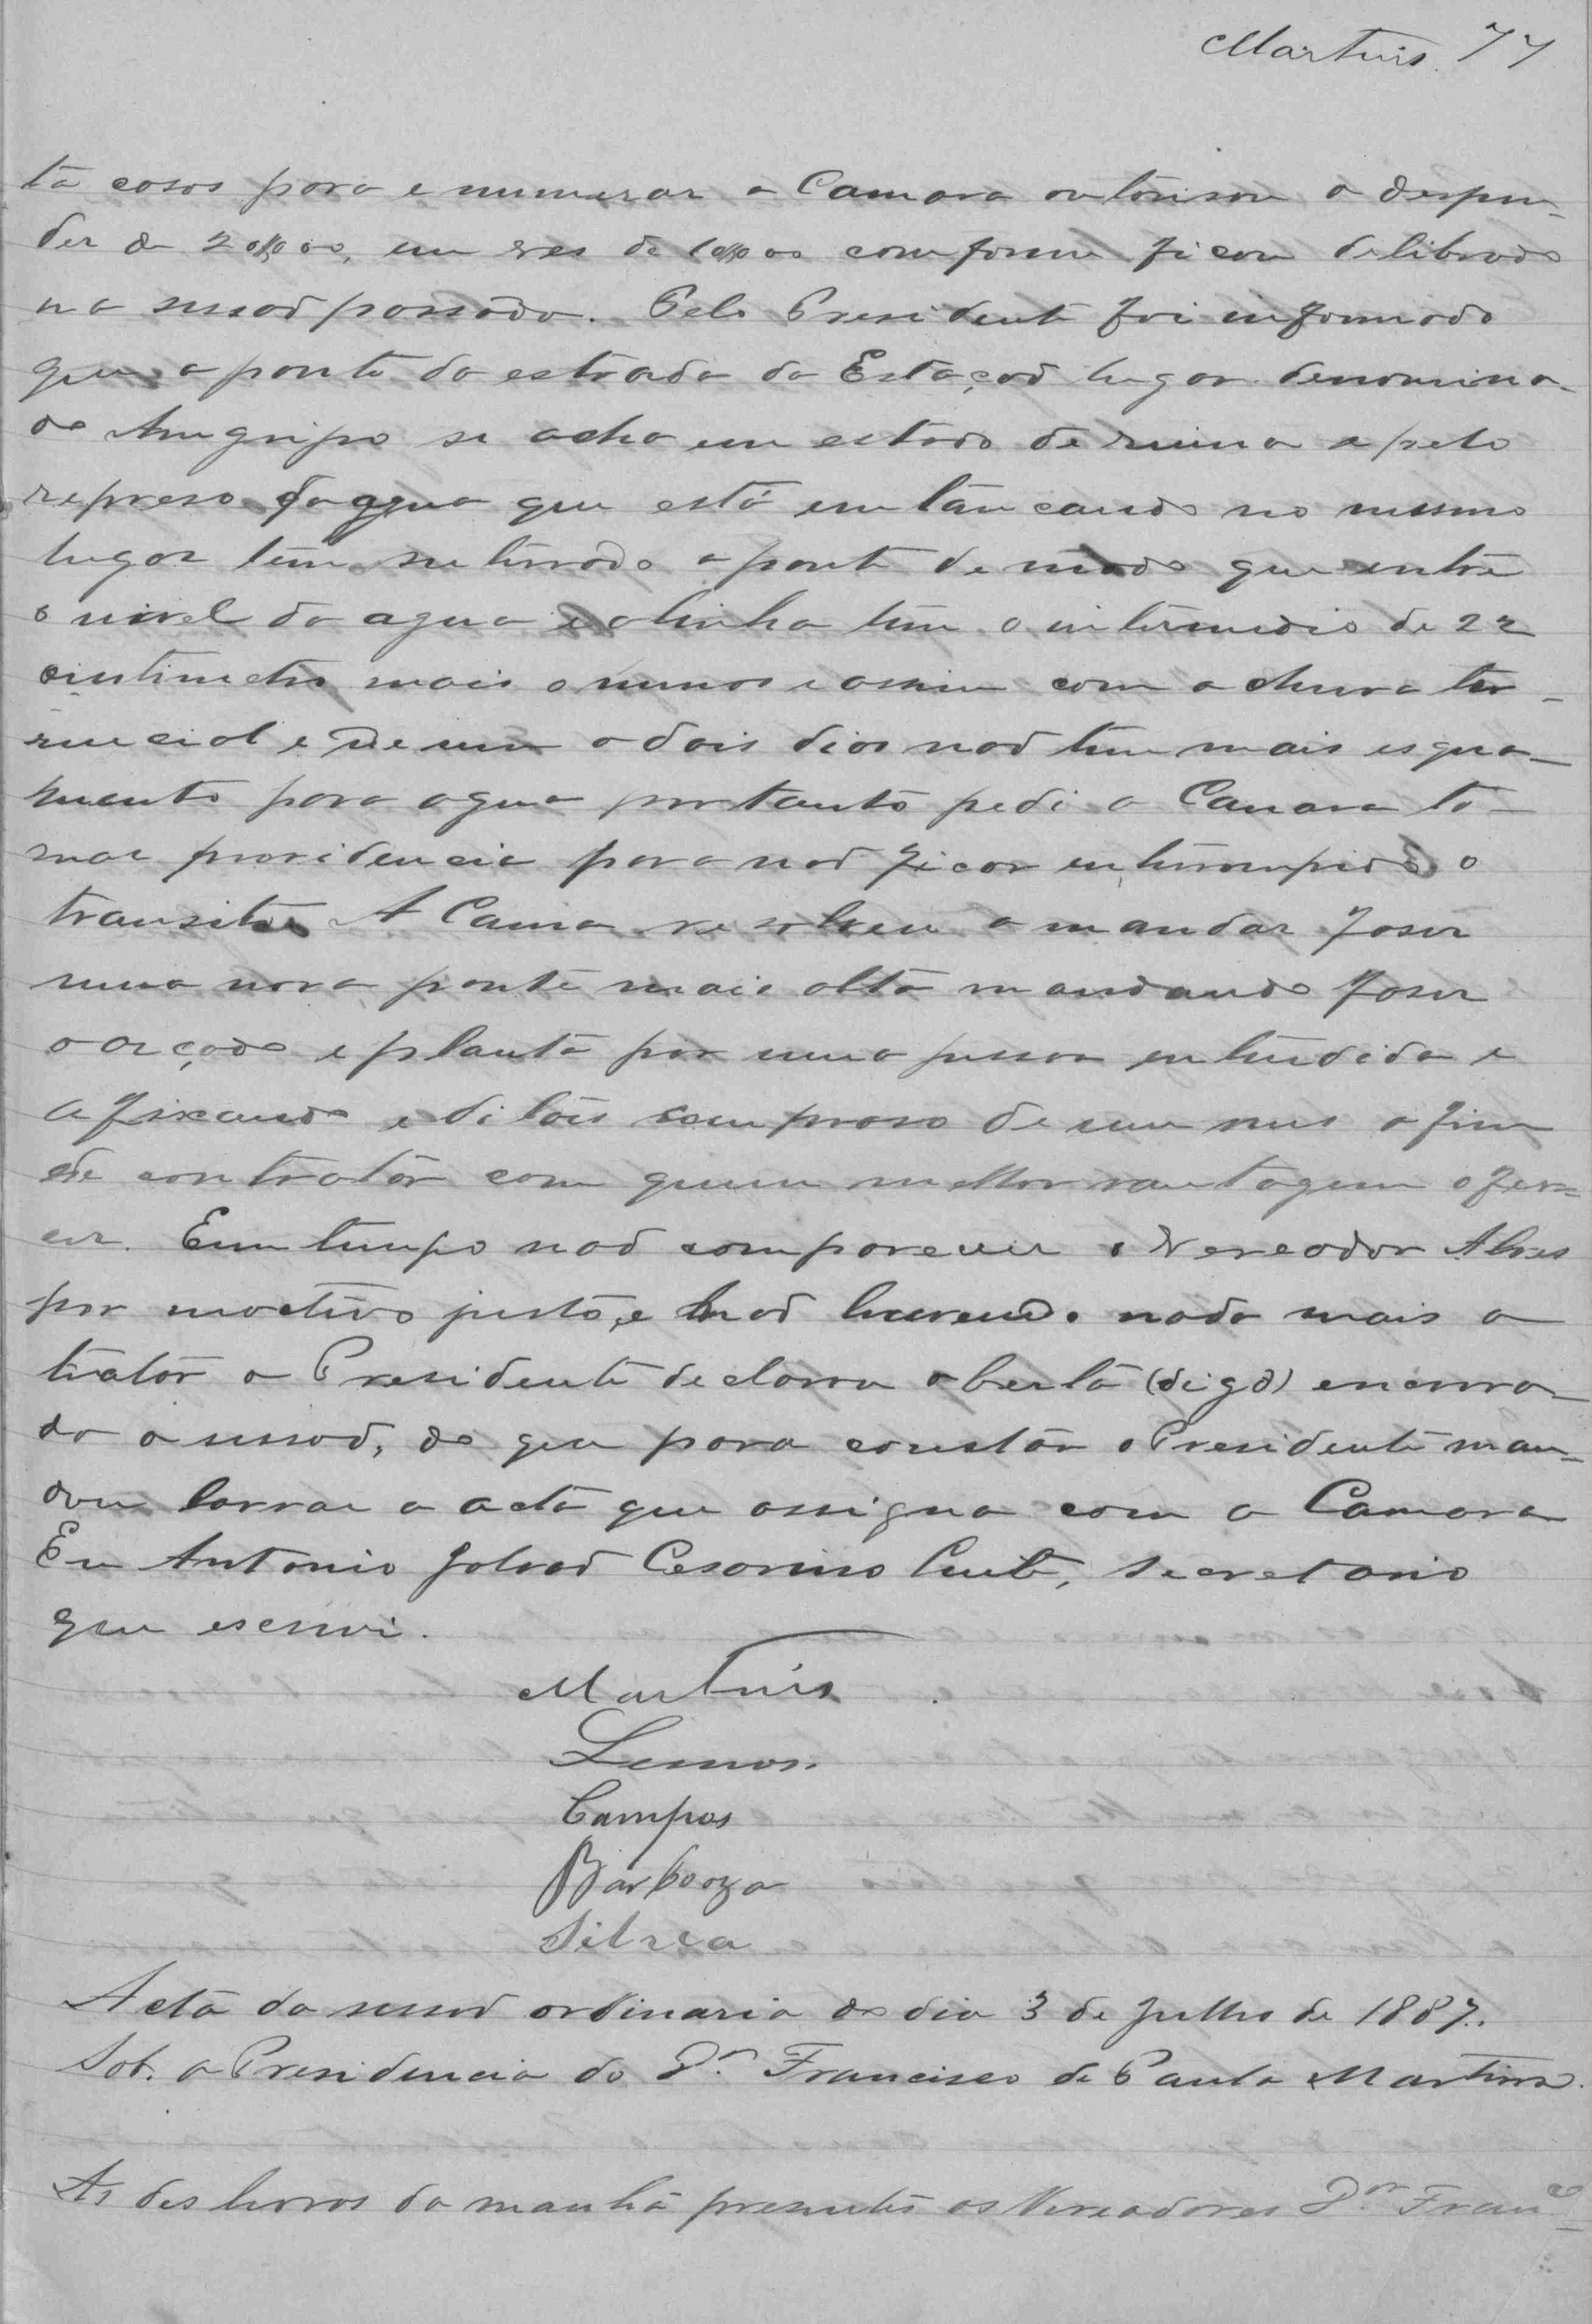 Martins. 77
ta casas para e numerar a Camara autorisou a despen-
der de 20$000, em ves de 10$000 comforme ficou delibrado
na sessaõ passada. Pelo Presidente foi informado
que a ponte da estrada da Estaçaõ lugar denomina-
do se acha em estado de ruina e pelo
represo da agua que está em tancando no mesmo
lugar tem a ponte de modo que entre
o nivel da agua e a linha tem o intermedio de 22
sintimetro mais o menos e assim com a chuva tor-
rencial e de um a dois dias naõ tem mais esgua-
mento para agua portanto pedi a Camara to-
mar providencia para naõ ficar enterrompido o
transito. A Camra resolveu a mandar faser
uma nova ponte mais alta mandando faser
o e planta por uma pessoa entendida e
afixando editões com praso de um mes afim
de contratar com quem melhor vantagem ofere-
cer. Em tempo naõ compareceu o Vereador Alves
por moctivo justo, e naõ havendo nada mais a
tratar o Presidente declarou aberta (digo) encerra-
da a sessaõ, do que para constar o Presidente man-
dou lavrar a acta que assigna com a Camara
Eu Antonio Galvaõ Cesarino Leite, Secretario
que escrevi.
Martins
Lemos.
Campos
Barboza
Silva
Acta da sessaõ ordinaria do dia 3 de Julho de 1887.
Sob. a Presidencia do Dr. Francisco de Paula Martins.
As des horas da manhã presentes os Vereadores Dr. Franco